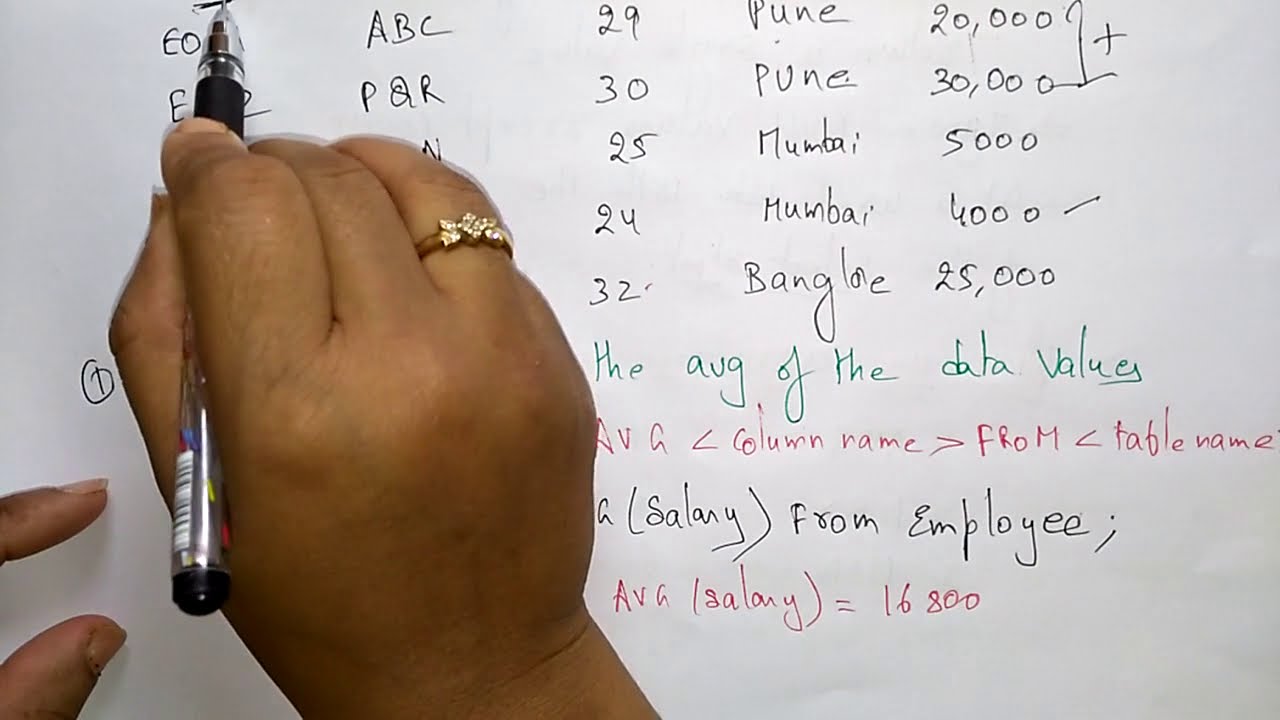 ABC 29 Pune 20,000 +
PQR 30 PUne 30,000
25 Mumbai 5000
24 Mumbai 4000
32 Banglore 25,000
① the avg of the data Values
AVG < Column name > FROM < table name
G (Salary) From Employee;
AVG (salary) = 16800